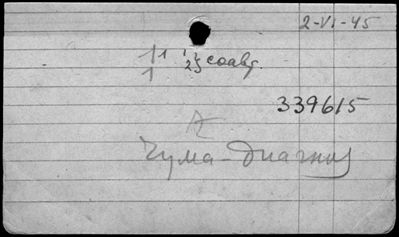 2-VI-45
1 1 1/25 соавт.
1
339615
А
Чума - Диагноз